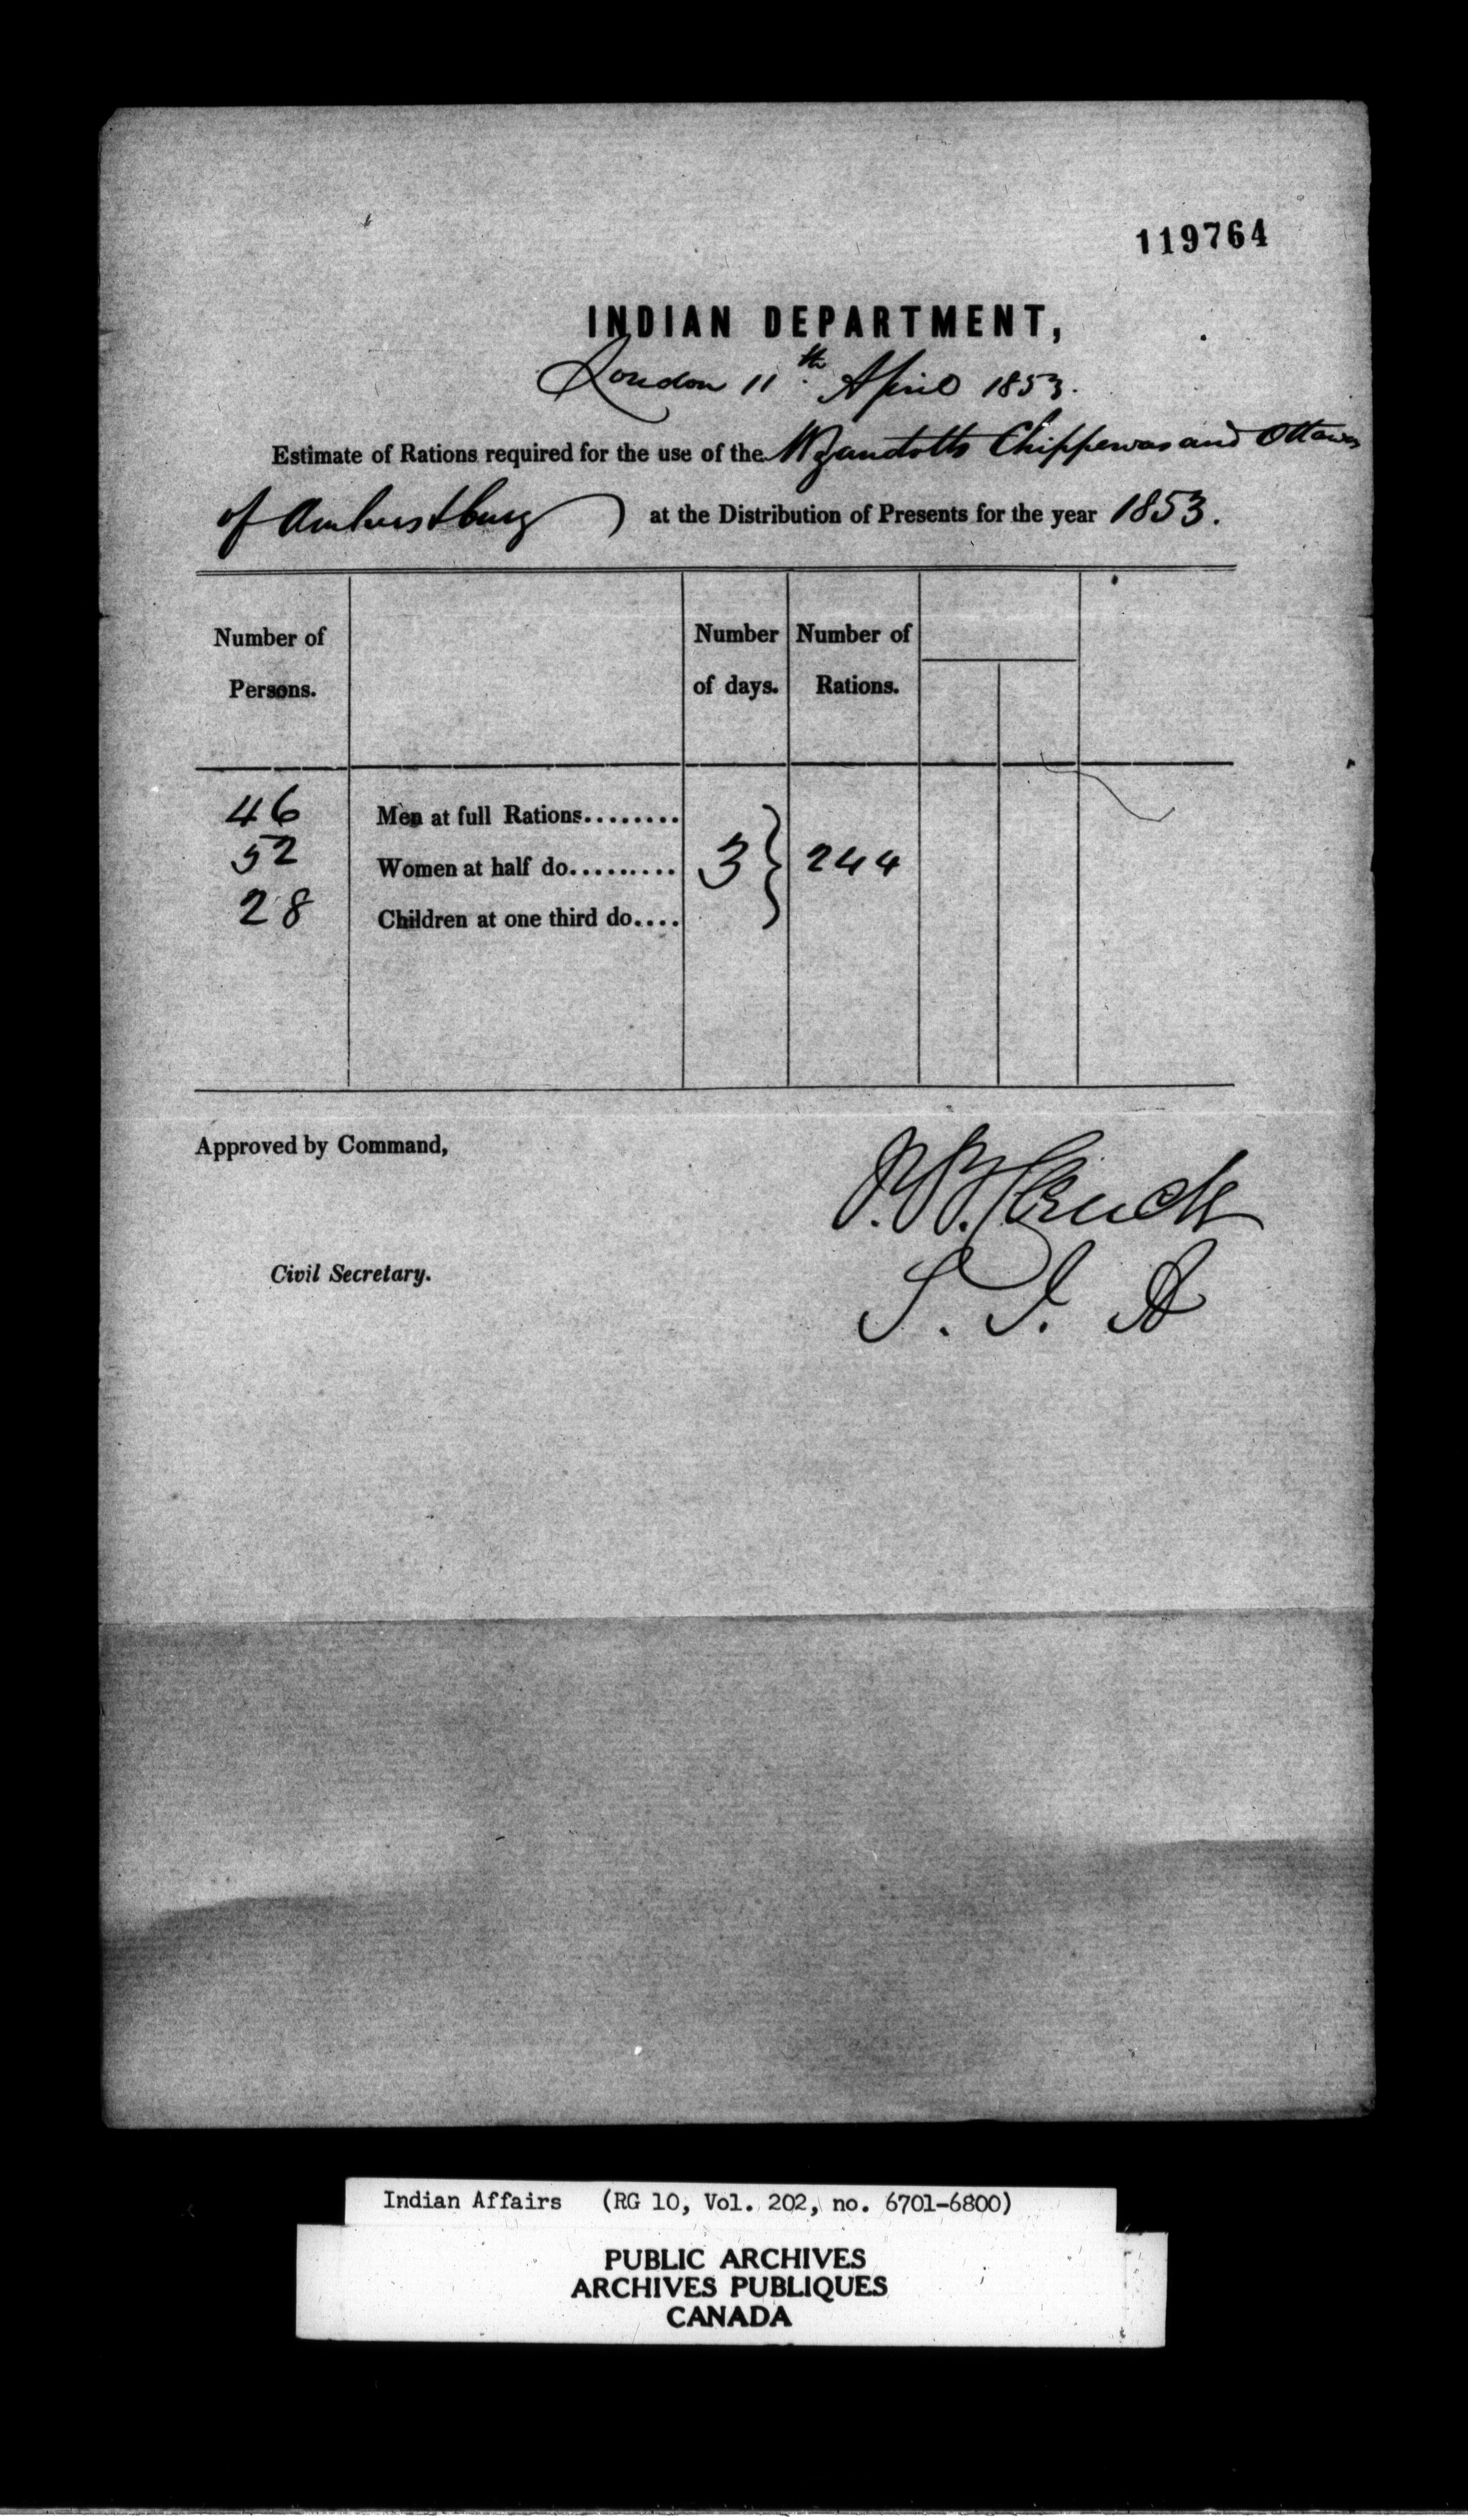 119764
INDIAN DEPARTMENT,
London 11th April 1853.
Estimate of Rations required for the use of the Wyandotts Chippewas and Ottawas
of Amherstburg ) at the Distribution of Presents for the year 1853.
Number of Persons. Number of days. Number of Rations.
46 Men at full Rations........
52 Women at half do......... 3 } 244
28 Children at one third do....
Approved by Command,
Civil Secretary.
S. I. A
Indian Affairs (RG 10, Vol. 202, no. 6701-6800)
PUBLIC ARCHIVES
ARCHIVES PUBLIQUES
CANADA